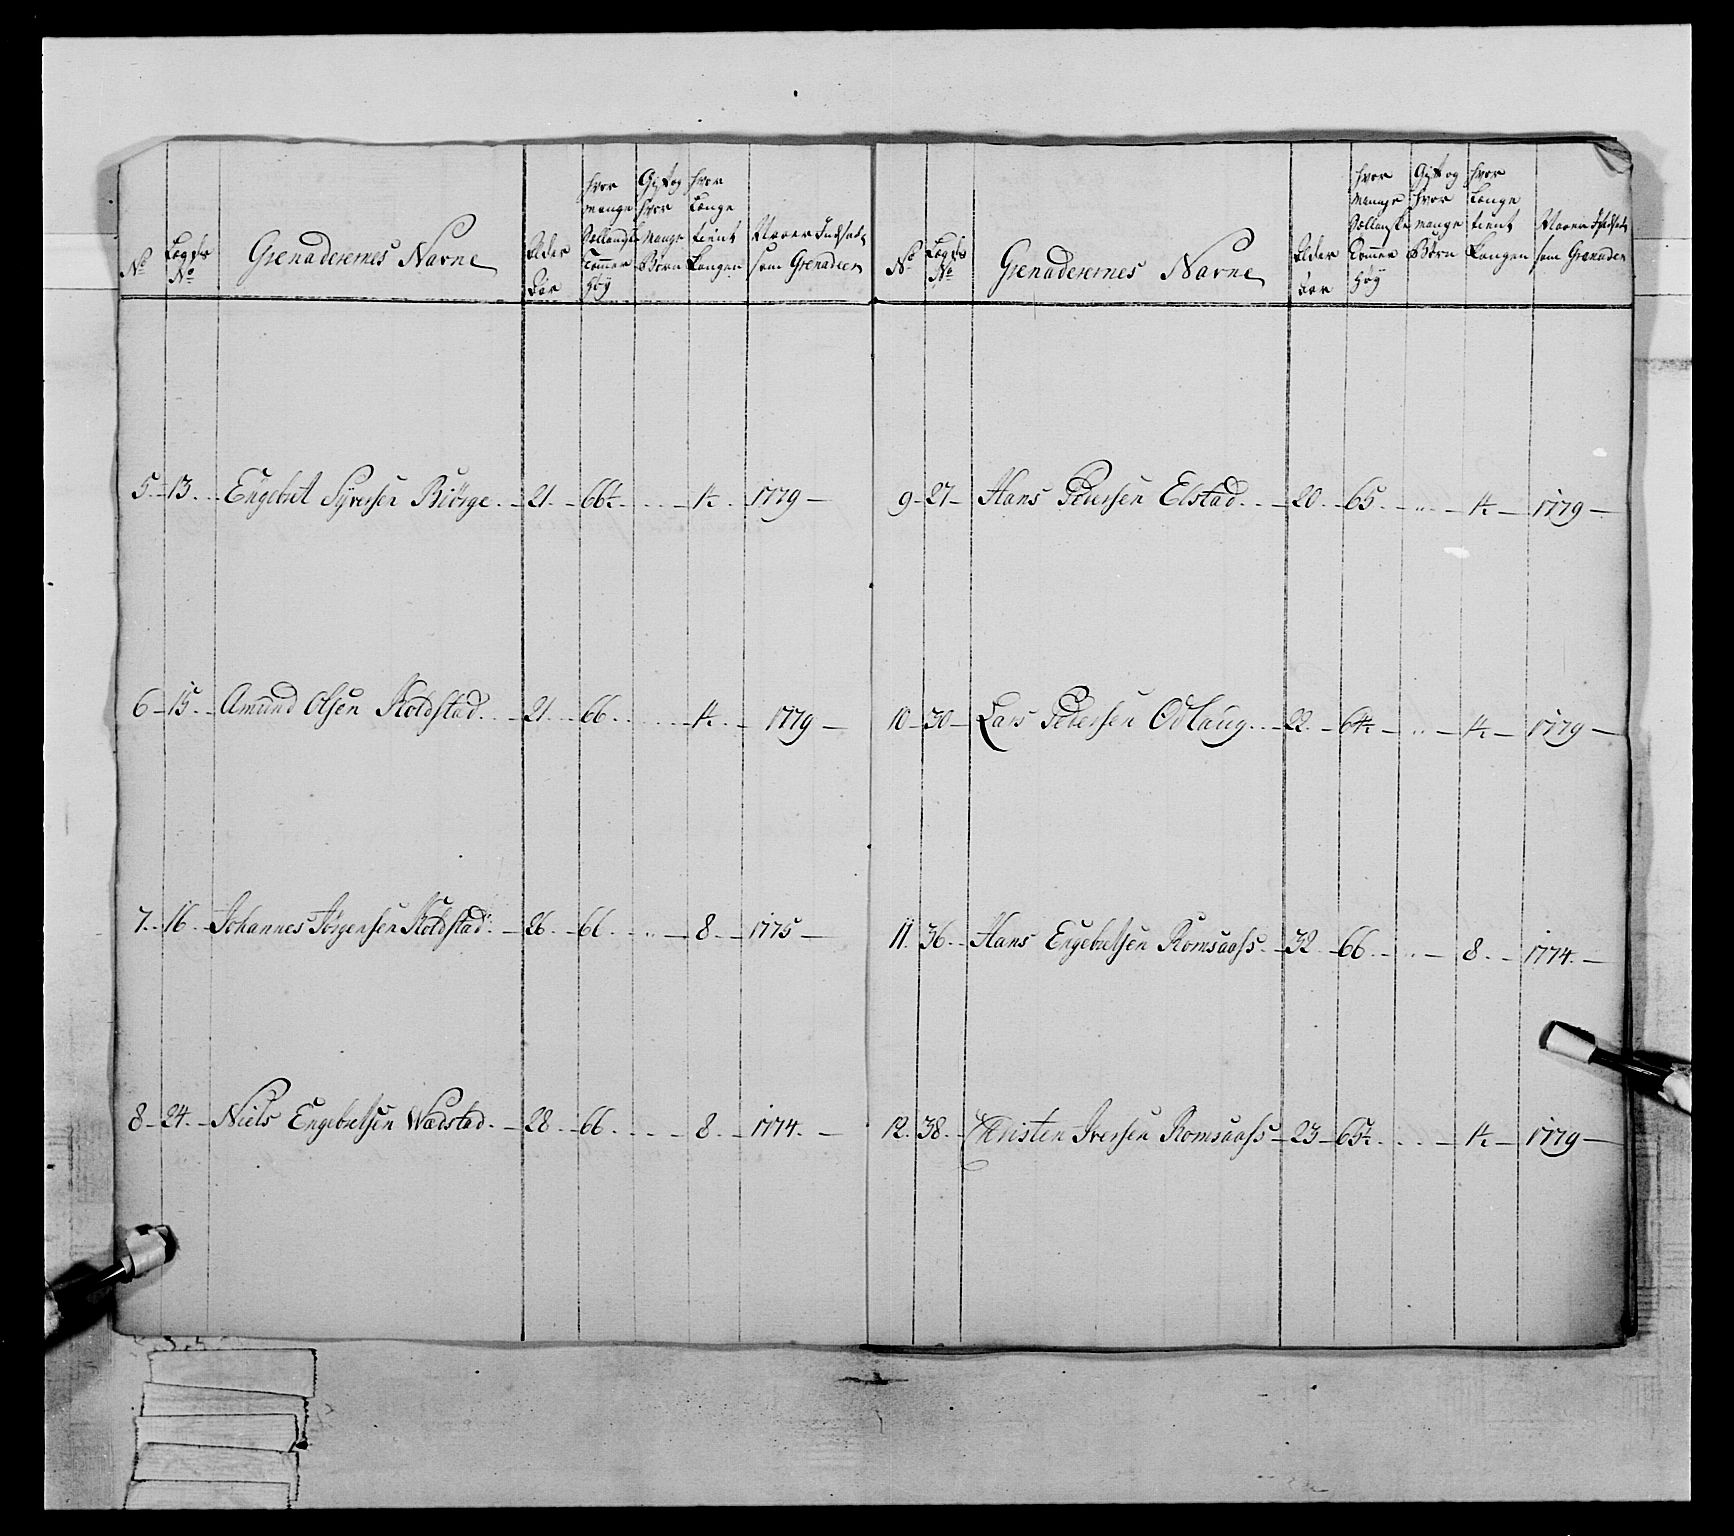 No
Lægds No
Grenaderernes Navne
Alder
Aar
hvor
mange
Siellandske
Tommer
høy
Gift og
hvor
mange
Børn
hvor
Længe
tient
Kongen
Naar Indsadt
som Grenadeer
5 13 Engebret Syversen Biørge 21 66½ 1½ 1779
6 15 Amund Olsen Koldstad 21 66 1½ 1779
7 16 Johannes Jørgensen Koldstad 26 66 8 1775
8 24 Niels Engebretsen Wadstad 28 66 8 1774
No
Lægds No
Grenaderernes Navne
Alder
Aar
hvor
mange
Tommer
høy
Gift og
hvor
mange
Børn
hvor
Længe
tient
Kongen
Naar Indsadt
som Grenadeer
9 27 Hans Pedersen Elstad 20 65 1½ 1779
10 30 Lars Pedersen Odlaug 22 64½ 1½ 1779
11 36 Hans Engebretsen Romsaass 32 66 8 1774
12 38 Christen Iversen Romsaass 23 65½ 1½ 1779